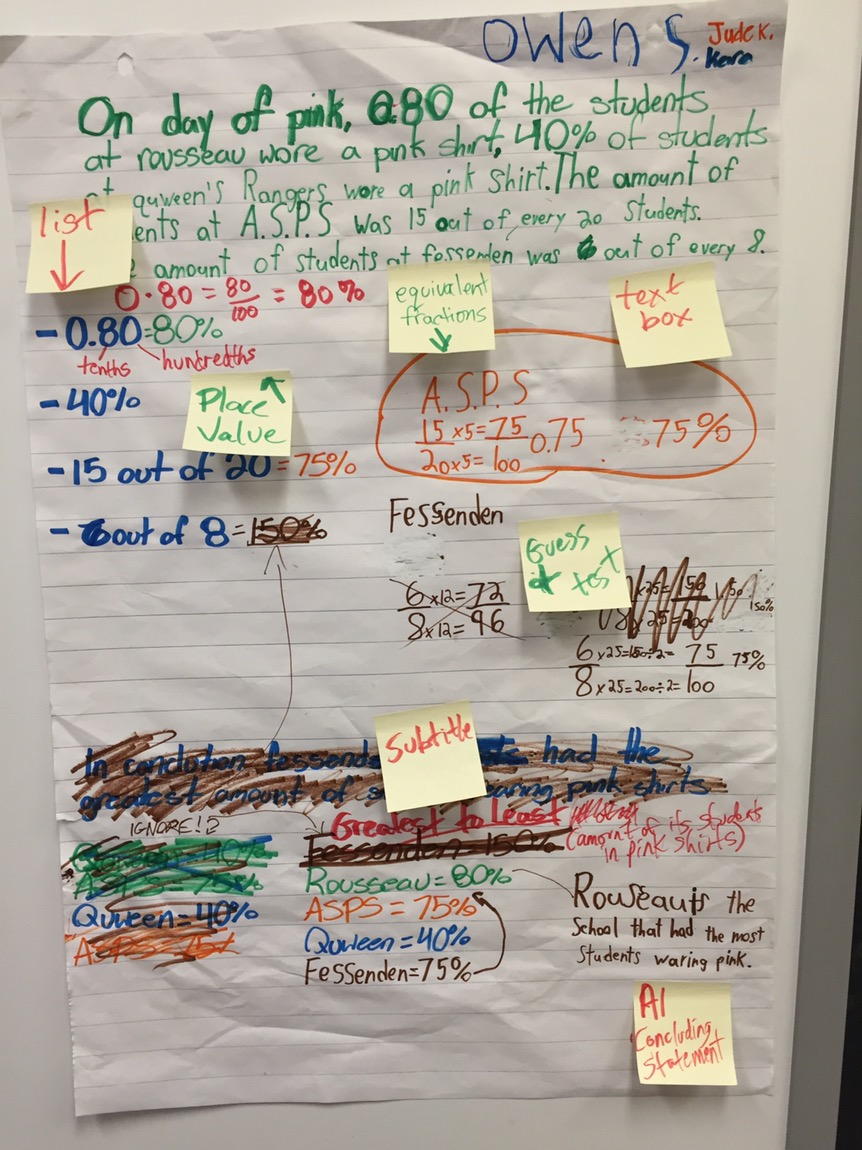 Owen S. Jude K.
Kara
On day of pink, 0.80 of the students
at rousseau wore a pink shirt, 40% of students
at quween's Rangers wore a pink shirt. The amount of
ents at A.S.P.S was 15 out of every 20 students.
amount of students at fessenden was 6 out of every 8.
list
0.80 = 80/100 = 80%
equivalent
fractions
text
box
- 0.80 = 80%
tenths hundredths
- 40%
Place
Value
A.S.P.S
15 x5= 75 0.75 75%
20 x5= 100
- 15 out of 20 = 75%
- 6 out of 8 = 150%
Fessenden
Guess
+ test
6 x12= 72
8 x12= 96
x25= 150 150%
08 x25= 200
6 x25=150÷2= 75 75%
8 x25=200÷2= 100
Subtitle
In conclution fessende had the
greatest amount of s earing pink shirts
IGNORE!?
Greatest to Least (amount of its students
in pink shirts)
Quween = 40%
ASPS = 75%
Quween = 40%
ASPS = 15
Fessenden = 150%
Rousseau = 80%
ASPS = 75%
Quween = 40%
Fessenden = 75%
Rouseau is the
School that had the most
Students waring pink.
A1
Concluding
Statement